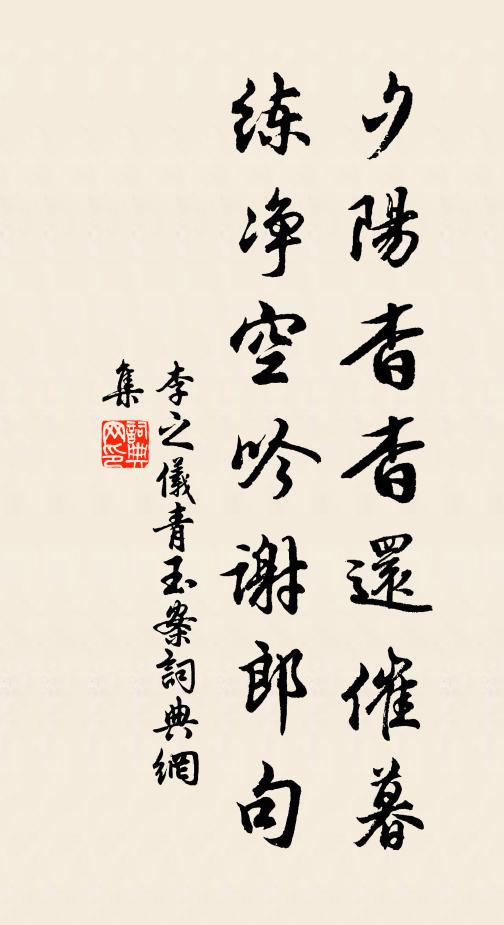 夕陽杳杳還催暮
练净空吟谢郎句
李之儀青玉案詞典網
集
詞典网印